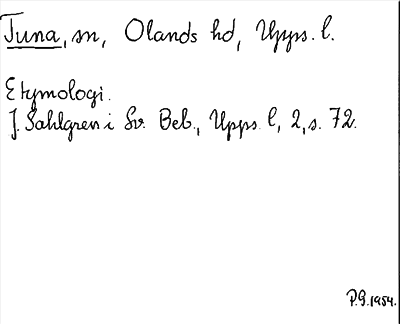 Tuna, sn, Olands hd, Upps. l.
Etymologi.
J. Sahlgren i Sv. Beb., Upps. l, 2, s. 72.
P.G. 1954.